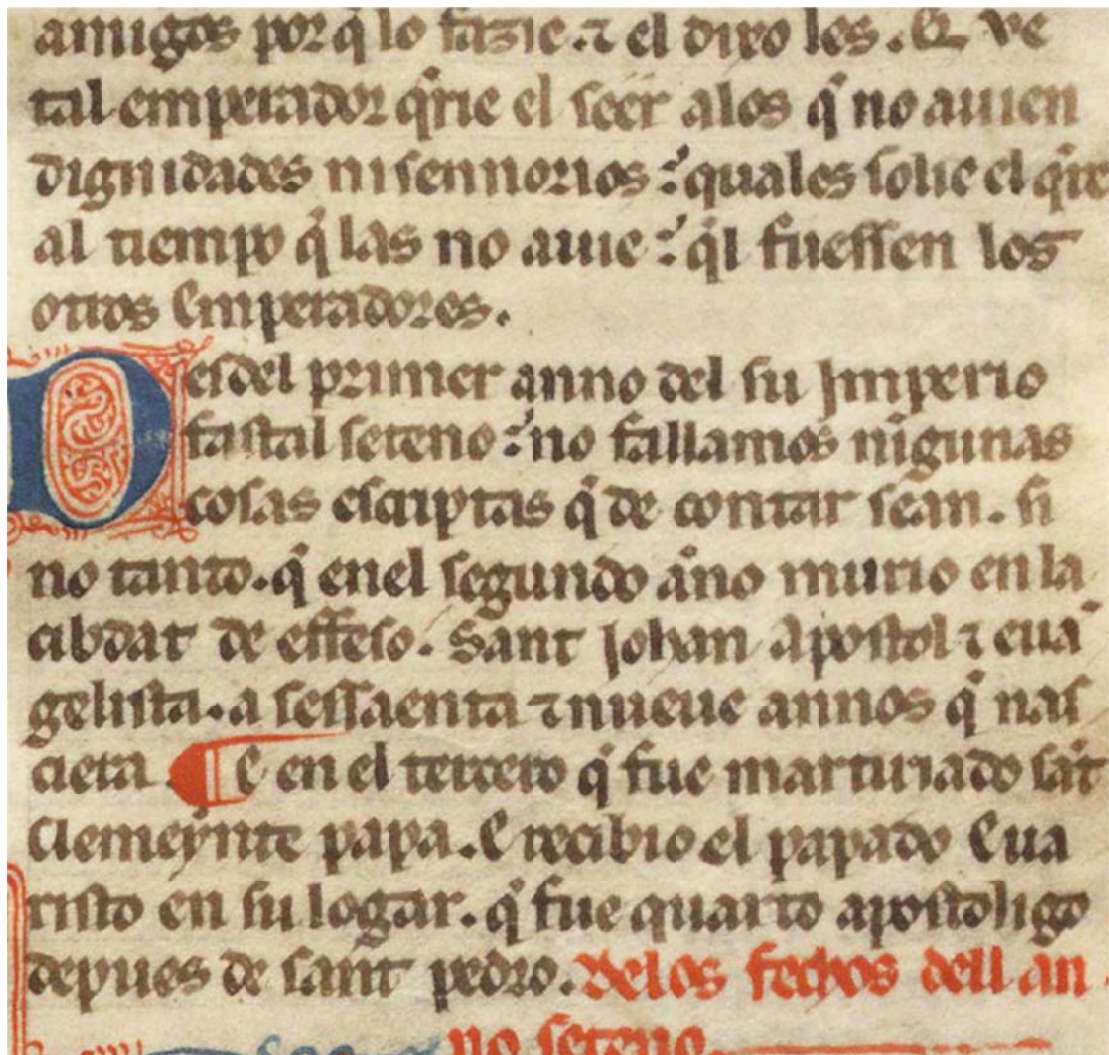 amigos por q̃ lo fazie. ⁊ el dixo les. Q̃ ve
tal emperador q̃rie el seer alos q̃ no auien
dignidades ni sennorios : quales solie el q̃rer
al tiempo q̃ las no auie : q̃l fuessen los
otros Emperadores.
Desdel primer anno del su Jmperio
fastal seteno : no fallamos nĩgunas
cosas escriptas q̃ de contar sean. si
no tanto. q̃ enel segundo ãno murio en la
cibdat de effeso. Sant Johan Apostol ⁊ euã
gelista. a sessaenta ⁊ nueue annos q̃ nas
ciera. ¶ E en el tercero q̃ fue marturiado sãt
Clemeynte papa. E recibio el papado Eua
risto en su logar. q̃ fue quarto apostoligo
depues de sant pedro. Delos fechos dell an
no seteno.